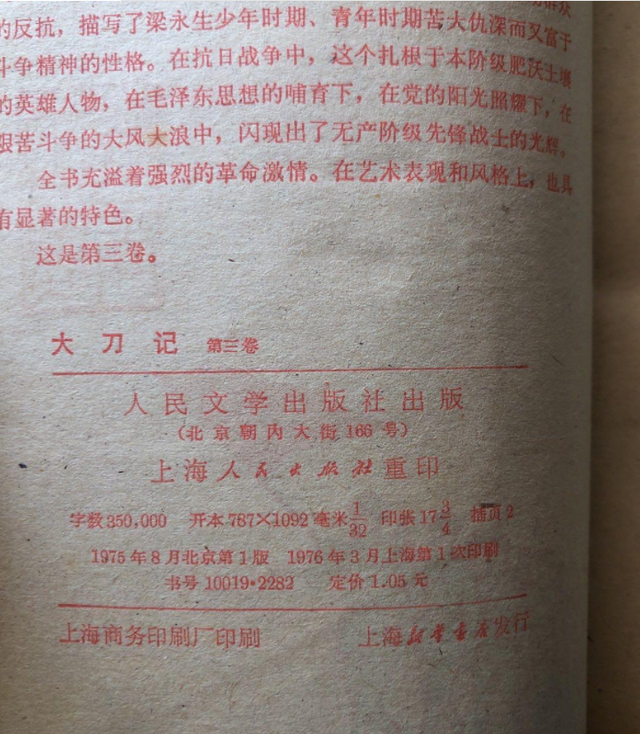 的反抗，描写了梁永生少年时期、青年时期苦大仇深而又富于
斗争精神的性格。在抗日战争中，这个扎根于本阶级肥沃土壤
的英雄人物，在毛泽东思想的哺育下，在党的阳光照耀下，在
艰苦斗争的大风大浪中，闪现出了无产阶级先锋战士的光辉。
全书充溢着强烈的革命激情。在艺术表现和风格上，也具
有显著的特色。
这是第三卷。
大刀记 第三卷
人民文学出版社出版
（北京朝内大街166号）
上海人民出版社重印
字数350,000 开本787×1092毫米1/32 印张17 3/4 插页2
1975年8月北京第1版 1976年3月上海第1次印刷
书号10019·2282 定价1.05元
上海商务印刷厂印刷 上海新华书店发行